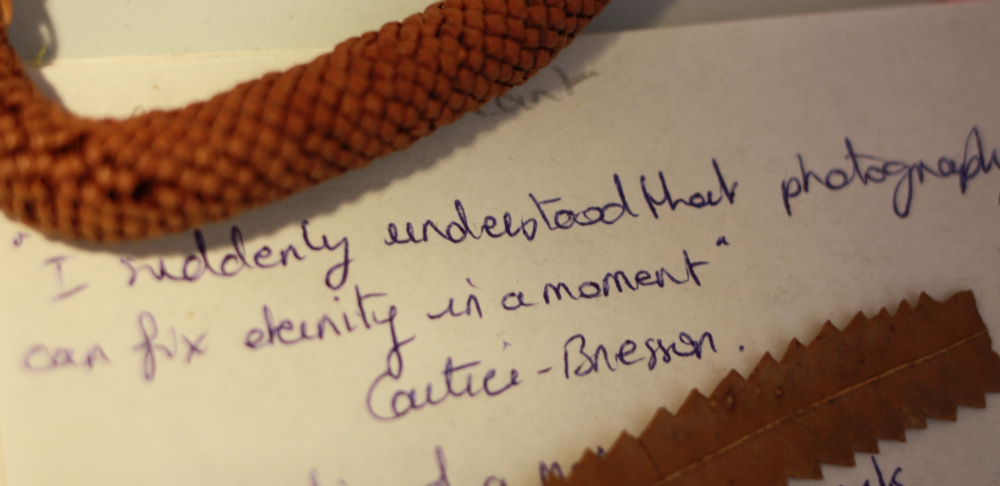 "I suddenly understood that photography
can fix eternity in a moment"
Cartier-Bresson.